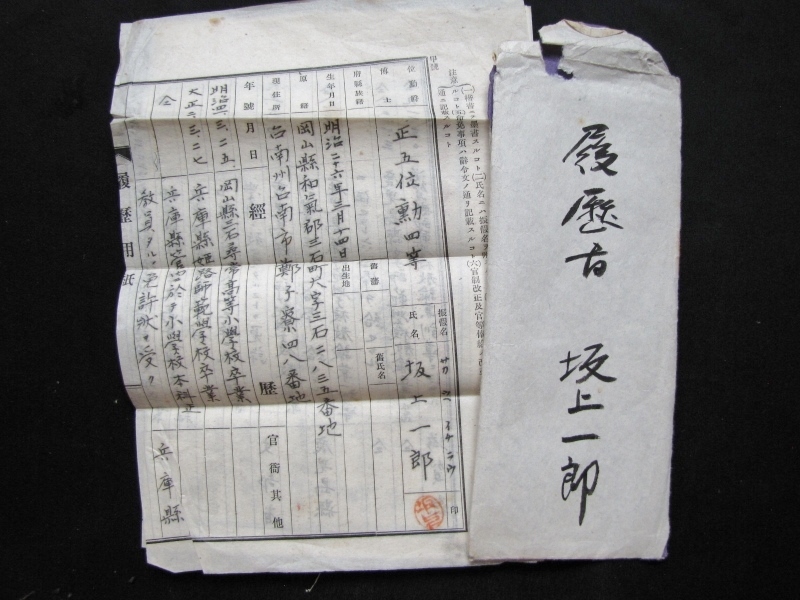 履歴書 坂上一郎
甲號
注意
位勲爵 正五位勲四等
博士
府縣族籍
舊籍
氏名 坂上一郎
振假名
印
舊氏名
生年月日 明治二十六年三月十四日
出生地
原籍 岡山縣和氣郡三石町大字三石二八三五番地
現住所 台南州台南市鄭子寮四八番地
年號月日 經歷 官衙其他
明治四一、三、二五 岡山縣三石尋常高等小學校卒業
大正二、三、二七 兵庫縣姫路師範學校卒業
仝 兵庫縣管内ニ於テ小學校本科正
教員タルノ免許狀ヲ受ク 兵庫縣
履歷用紙